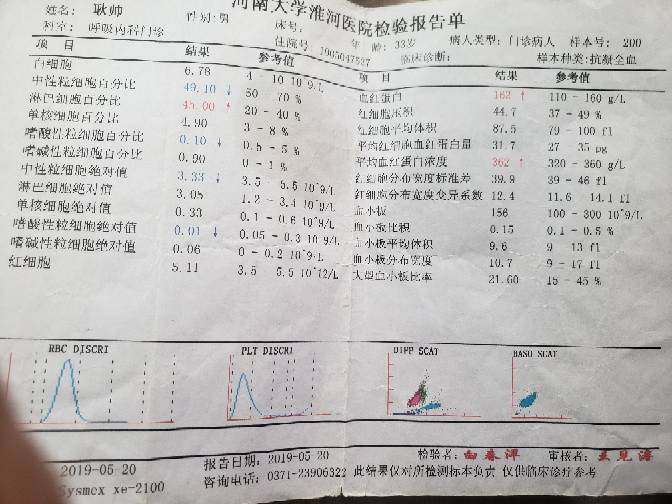 河南大学淮河医院检验报告单
姓名: 耿帅 性别:男 床号:
年龄: 33岁 病人类型: 门诊病人 样本号: 200
科室: 呼吸内科门诊 住院号: 1905047537 临床诊断: 样本种类:抗凝全血
项 目 结果 参考值
白细胞 6.78 4 - 10 10^9/L
中性粒细胞百分比 49.10 ↓ 50 - 70 %
淋巴细胞百分比 45.00 ↑ 20 - 40 %
单核细胞百分比 4.90 3 - 8 %
嗜酸性粒细胞百分比 0.10 ↓ 0.5 - 5 %
嗜碱性粒细胞百分比 0.90 0 - 1 %
中性粒细胞绝对值 3.33 ↓ 3.5 - 5.5 10^9/L
淋巴细胞绝对值 3.05 1.2 - 3.4 10^9/L
单核细胞绝对值 0.33 0.1 - 0.6 10^9/L
嗜酸性粒细胞绝对值 0.01 ↓ 0.05 - 0.3 10^9/L
嗜碱性粒细胞绝对值 0.06 0 - 0.2 10^9/L
红细胞 5.11 3.5 - 5.5 10^12/L
项 目 结果 参考值
血红蛋白 162 ↑ 110 - 160 g/L
红细胞压积 44.7 37 - 49 %
红细胞平均体积 87.5 79 - 100 fl
平均红细胞血红蛋白量 31.7 27 - 35 pg
平均血红蛋白浓度 362 ↑ 320 - 360 g/L
红细胞分布宽度标准差 39.9 39 - 46 fl
红细胞分布宽度变异系数 12.4 11.6 - 14.1 fl
血小板 156 100 - 300 10^9/L
血小板比积 0.15 0.1 - 0.5 %
血小板平均体积 9.6 9 - 13 fl
血小板分布宽度 10.7 9 - 17 fl
大型血小板比率 21.60 15 - 45 %
RBC DISCRI PLT DISCRI DIFF SCAT BASO SCAT
检验者: 审核者:
2019-05-20 报告日期: 2019-05-20
Sysmex xe-2100 咨询电话: 0371-23906322 此结果仅对所检测标本负责 仅供临床诊疗参考